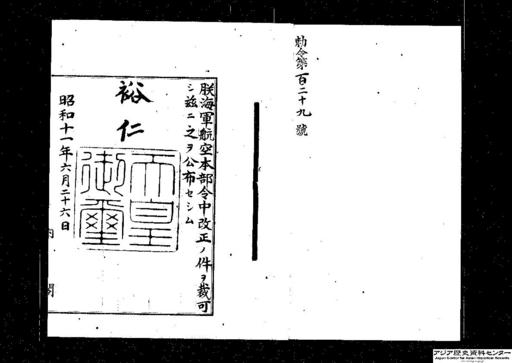 勅令第百二十九號
朕海軍航空本部令中改正ノ件ヲ裁可
シ茲ニ之ヲ公布セシム
裕仁
天皇御璽
昭和十一年六月二十六日
内閣
アジア歴史資料センター
Japan Center for Asian Historical Records